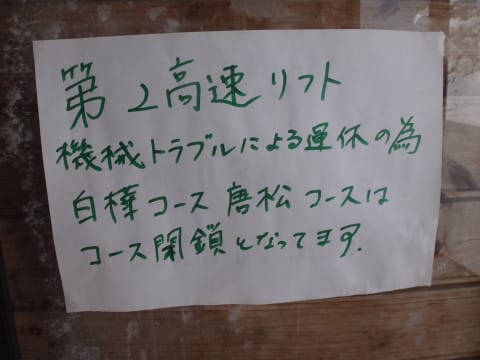 第2高速リフト
機械トラブルによる運休の為
白樺コース 唐松コースは
コース閉鎖となってます.